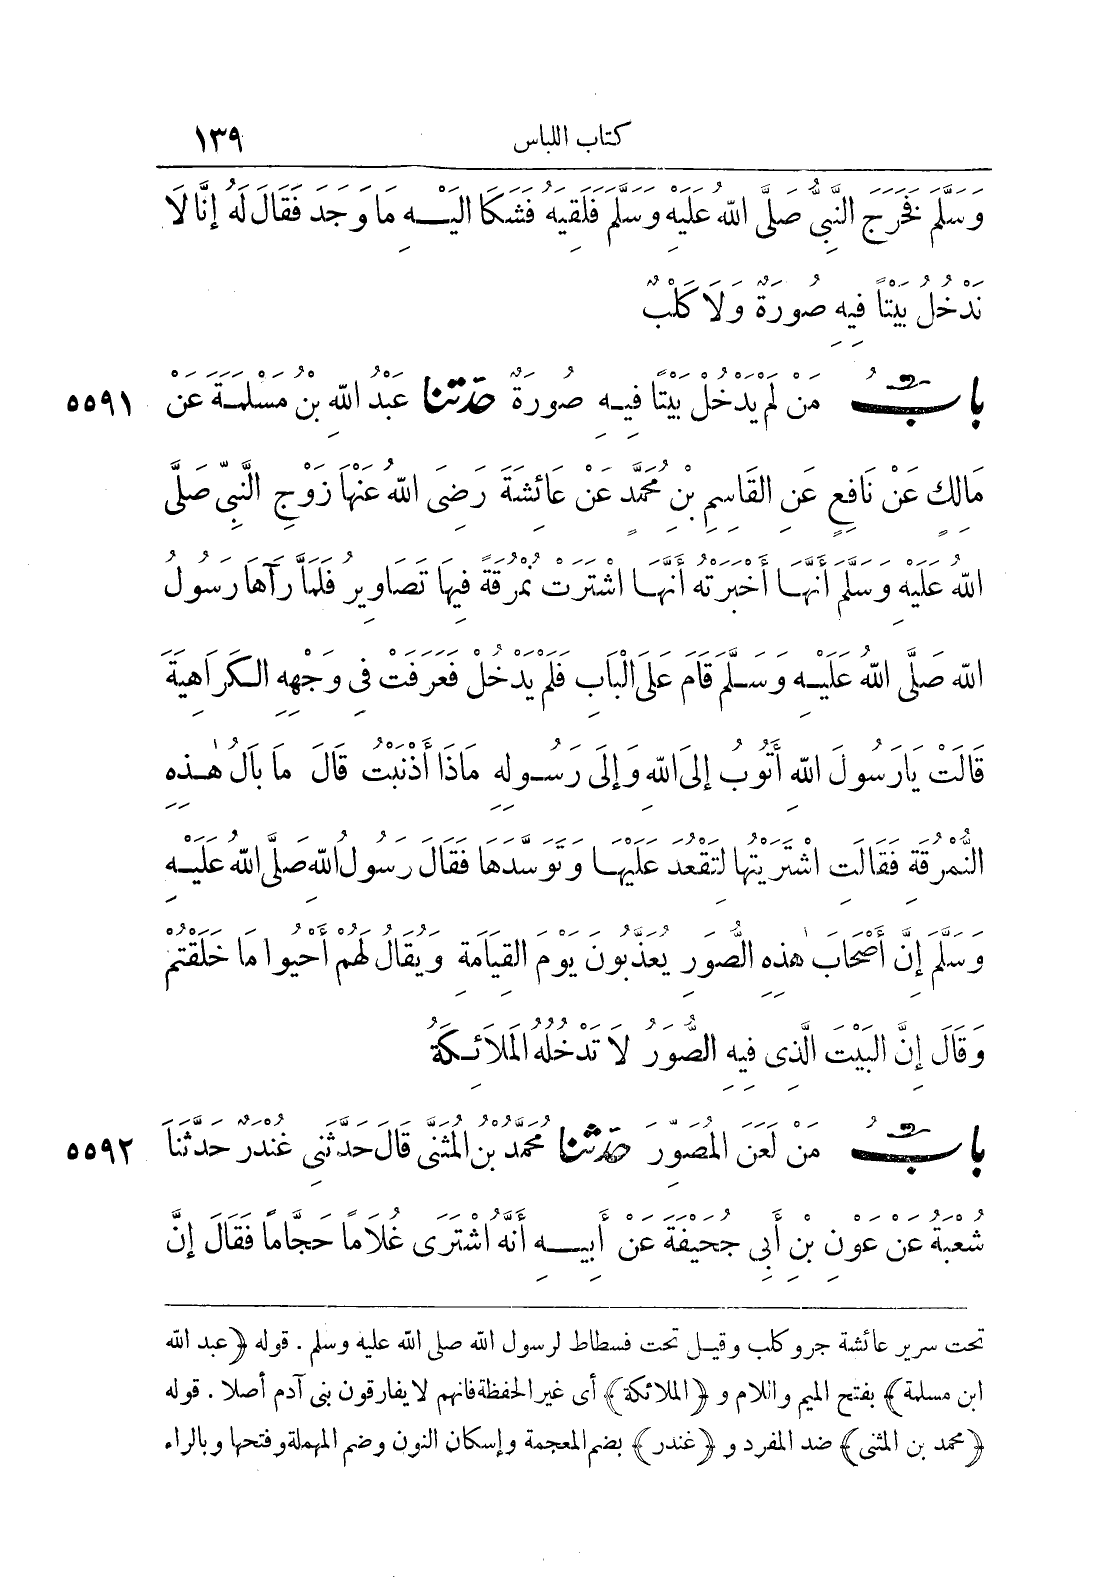 كتاب اللباس ١٣٩
وَسَلَّمَ فَخَرَجَ النَّبِىُّ صَلَّى اللهُ عَلَيْهِ وَسَلَّمَ فَلَقِيَهُ فَشَكَا الَيْهِ مَا وَجَدَ فَقَالَ لَهُ إِنَّا لَا
نَدْخُلُ بَيْتًا فِيهِ صُورَةٌ وَلَا كَلْبٌ
بابُ مَنْ لَمْ يَدْخُلْ بَيْتًا فِيهِ صُورَةٌ حدثنا عَبْدُ اللهِ بْنُ مَسْلَمَةَ عَنْ ٥٥٩١
مَالِكٍ عَنْ نَافِعٍ عَنِ القَاسِمِ بْنِ مُحَمَّدٍ عَنْ عَائِشَةَ رَضِىَ اللهُ عَنْهَا زَوْجِ النَّبِىِّ صَلَّى
اللهُ عَلَيْهِ وَسَلَّمَ أَنَّهَا أَخْبَرَتْهُ أَنَّهَا اشْتَرَتْ نُمْرُقَةً فِيهَا تَصَاوِيرُ فَلَمَّا رَآهَا رَسُولُ
اللهِ صَلَّى اللهُ عَلَيْهِ وَسَلَّمَ قَامَ عَلَى الْبَابِ فَلَمْ يَدْخُلْ فَعَرَفَتْ فِى وَجْهِهِ الكَرَاهِيَةَ
قَالَتْ يَارَسُولَ اللهِ أَتُوبُ إِلَى اللهِ وَإِلَى رَسُولِهِ مَاذَا أَذْنَبْتُ قَالَ مَا بَالُ هٰذِهِ
النُّمْرُقَةِ فَقَالَتِ اشْتَرَيْتُهَا لِتَقْعُدَ عَلَيْهَا وَتَوَسَّدَهَا فَقَالَ رَسُولُ اللهِ صَلَّى اللهُ عَلَيْهِ
وَسَلَّمَ إِنَّ أَصْحَابَ هٰذِهِ الصُّوَرِ يُعَذَّبُونَ يَوْمَ القِيَامَةِ وَيُقَالُ لَهُمْ أَحْيُوا مَا خَلَقْتُمْ
وَقَالَ إِنَّ البَيْتَ الَّذِى فِيهِ الصُّوَرُ لَا تَدْخُلُهُ المَلَائِكَةُ
بابُ مَنْ لَعَنَ المُصَوِّرَ حدثنا مُحَمَّدُ بْنُ المُثَنَّى قَالَ حَدَّثَنِى غُنْدَرٌ حَدَّثَنَا ٥٥٩٢
شُعْبَةُ عَنْ عَوْنِ بْنِ أَبِى جُحَيْفَةَ عَنْ أَبِيهِ أَنَّهُ اشْتَرَى غُلَامًا حَجَّامًا فَقَالَ إِنَّ
تحت سرير عائشة جرو كلب وقيل تحت فسطاط لرسول الله صلى الله عليه وسلم . قوله ﴿عبد الله
ابن مسلمة﴾ بفتح الميم واللام و ﴿الملائكة﴾ أى غير الحفظة فانهم لا يفارقون بنى آدم أصلا . قوله
﴿محمد بن المثنى﴾ ضد المفرد و ﴿غندر﴾ بضم المعجمة وإسكان النون وضم المهملة وفتحها وبالراء